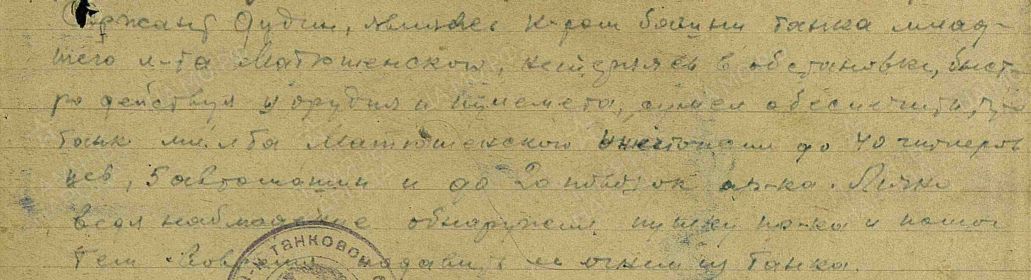 Сержант Дудин, являясь к-ром башни танка млад-
шего л-та Матюшенского, не теряясь в обстановке, быст-
ро действуя у орудия и пулемета, сумел обеспечить,
танк мл. л-та Матюшенского уничтожил до 40 гитлеров
цев, 5 автомашин и до 20 повозок пр-ка. Лично
ведя наблюдение обнаружил пушку пр-ка и помог
тем подавить ее огнем из танка.
танковой